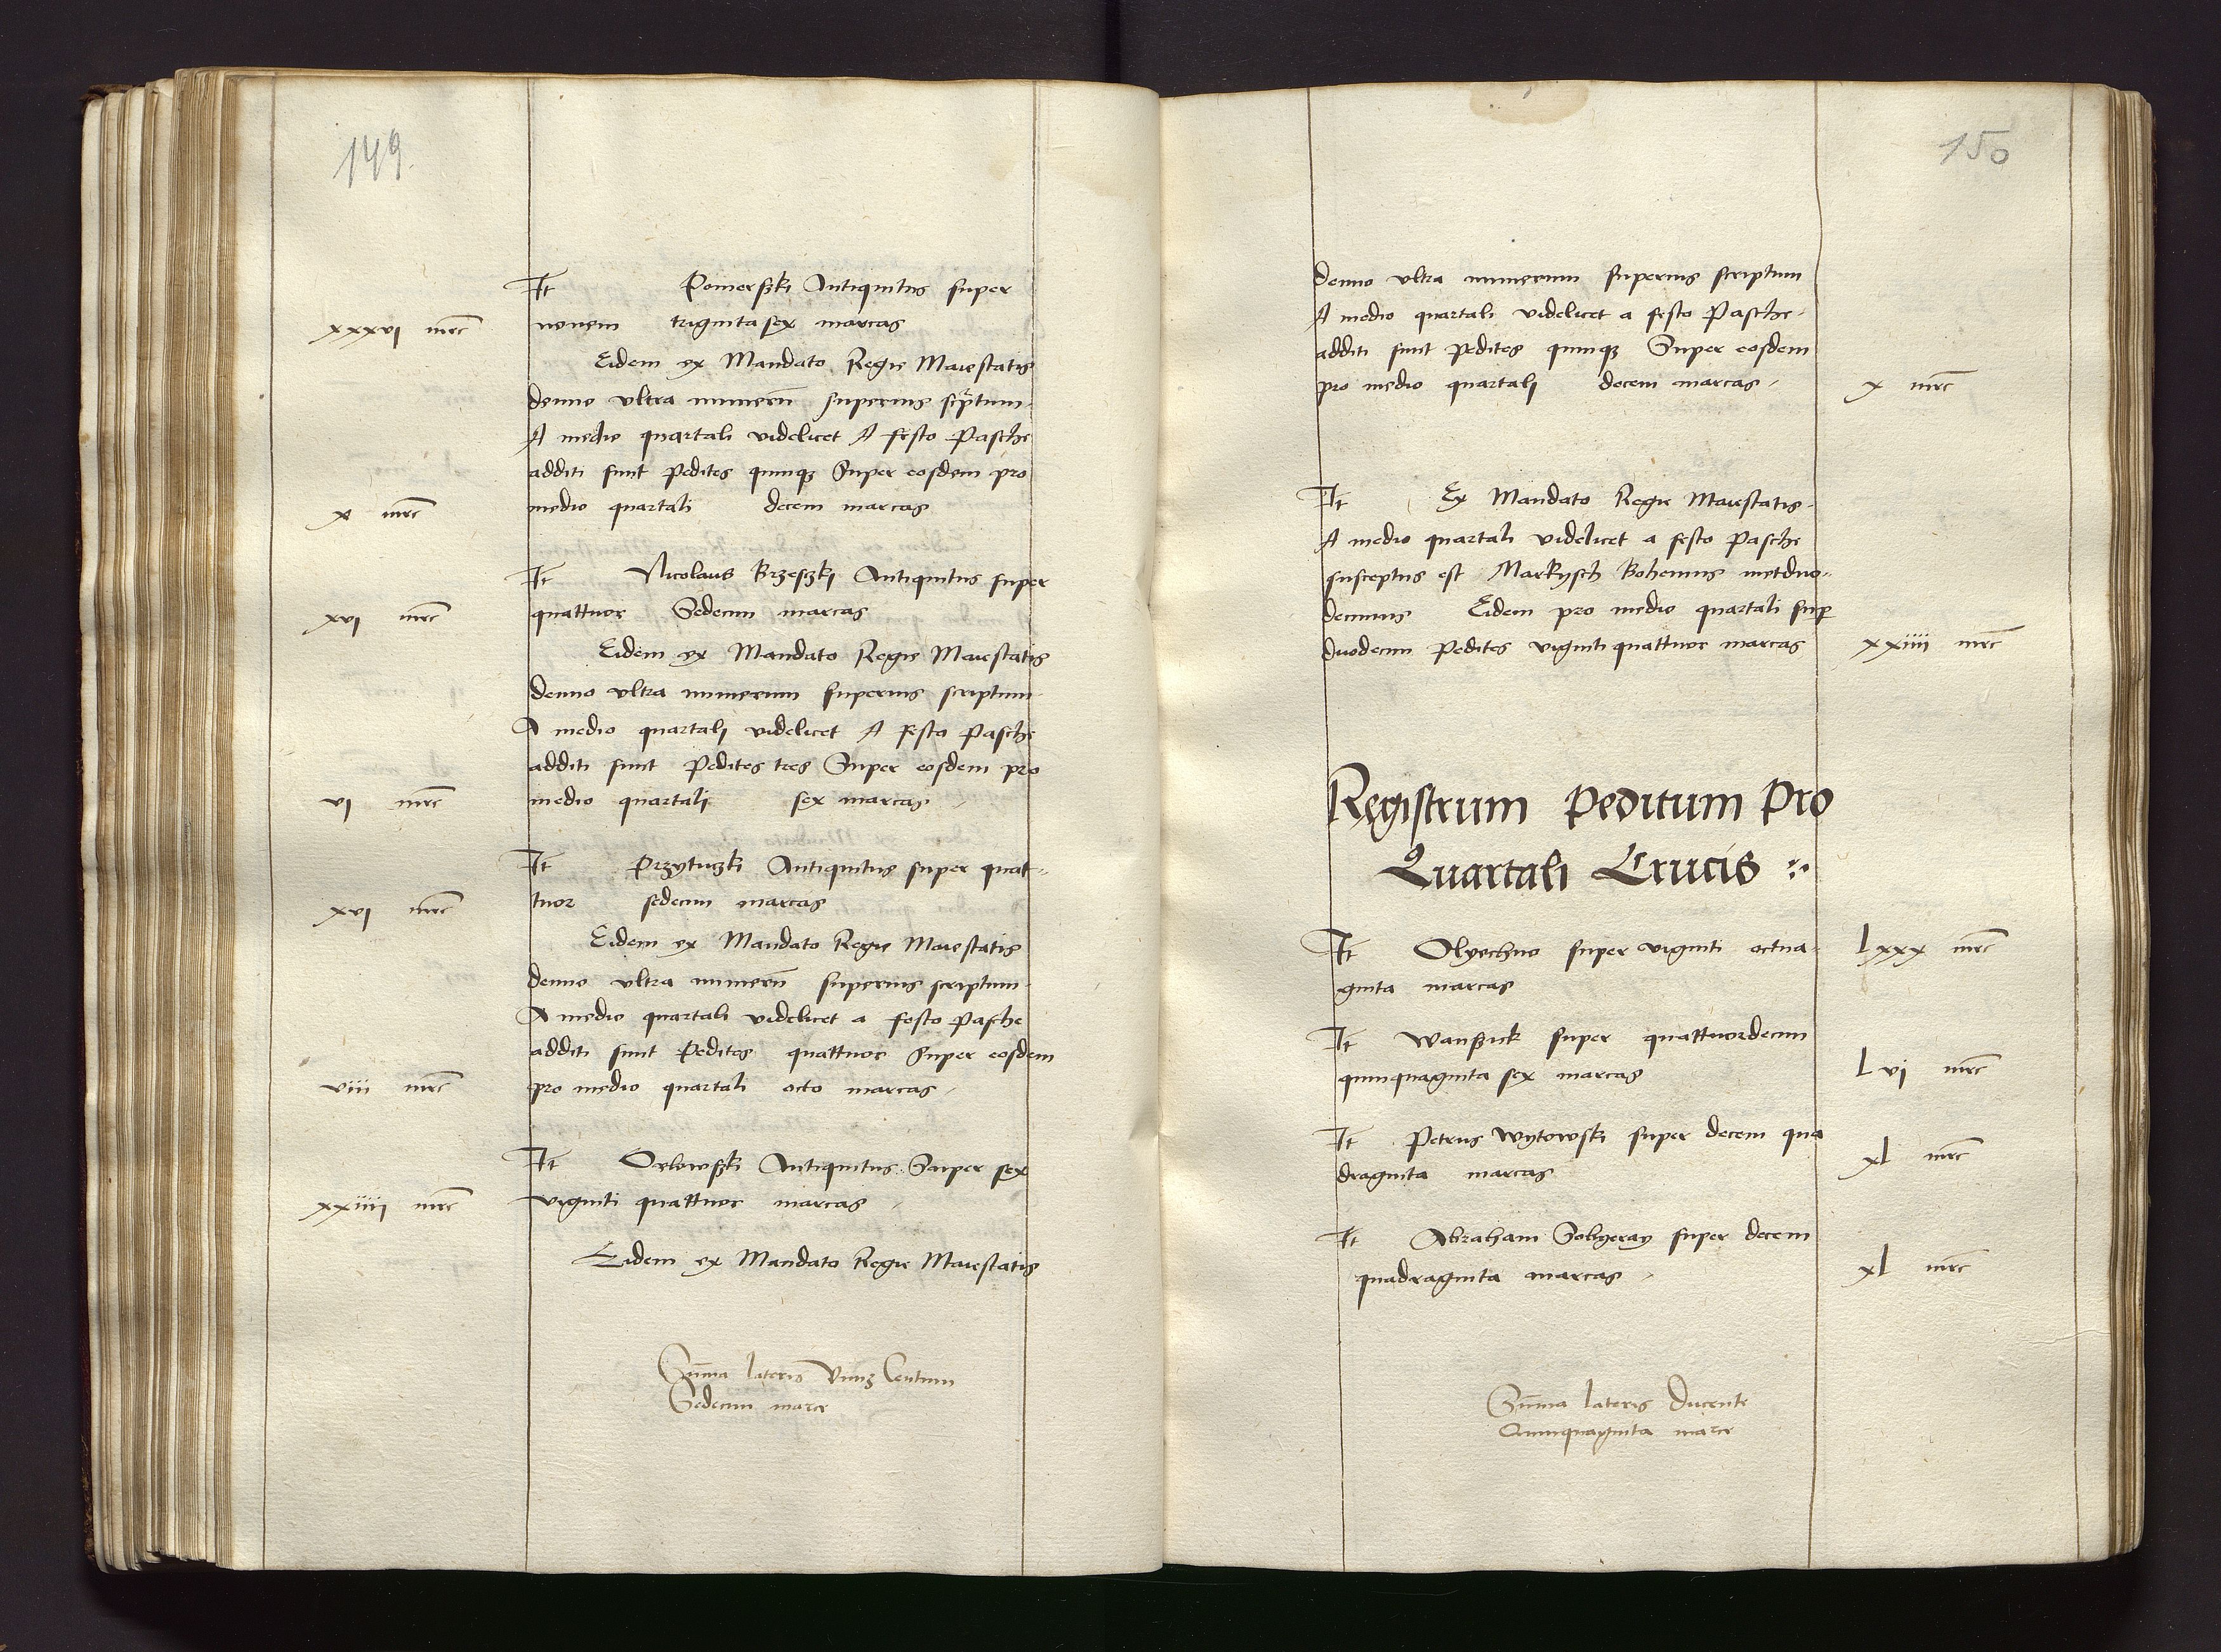 149.
It Pomerszki Antiquitus super
xxxvi mrc nouem triginta sex marcas
Eidem ex Mandato Regie Maiestatis
denuo vltra numerũ superius scriptum
A medio quartali videlicet A festo Pasche
additi sunt Pedites quinqz Super eosdem pro
x mrc medio quartali decem marcas
It Nicolaus Brzeszki Antiquitus super
xvi mrc quattuor Sedecim marcas
Eidem ex Mandato Regie Maiestatis
denuo vltra numerum superius scriptum
A medio quartali videlicet A festo Pasche
additi sunt Pedites tres Super eosdem pro
vi mrc medio quartali sex marcas
It Przytuzki Antiquitus super quat-
xvi mrc tuor sedecim marcas
Eidem ex Mandato Regie Maiestatis
denuo vltra numerũ superius scriptum
A medio quartali videlicet a festo Pasche
additi sunt Pedites quattuor Super eosdem
viii mrc pro medio quartali octo marcas
It Orlowszki Antiquitus Super sex
xxiiii mrc viginti quattuor marcas
Eidem ex Mandato Regie Maiestatis
Sũma lateris Centum
Sedecim marce
150
denuo vltra numerum superius scriptum
A medio quartali videlicet a festo Pasche
additi sunt Pedites quinqz Super eosdem
pro medio quartali decem marcas x mrc
It Ex Mandato Regie Maiestatis
A medio quartali videlicet a festo Pasche
susceptus est Markysch Bohemus metduo-
decimus Eidem pro medio quartali sup
duodecim Pedites viginti quattuor marcas xxiiii mrc
Registrum Peditum Pro
Quartali Crucis
It Olyechno super viginti octua- lxxx mrc
ginta marcas
It Wanszik super quattuordecim
quinquaginta sex marcas lvi mrc
It Petrus Wytowski super decem qua
draginta marcas xl mrc
It Abraham Sobyeray super decem
quadraginta marcas xl mrc
Sũma lateris Ducente
Quinquaginta marce